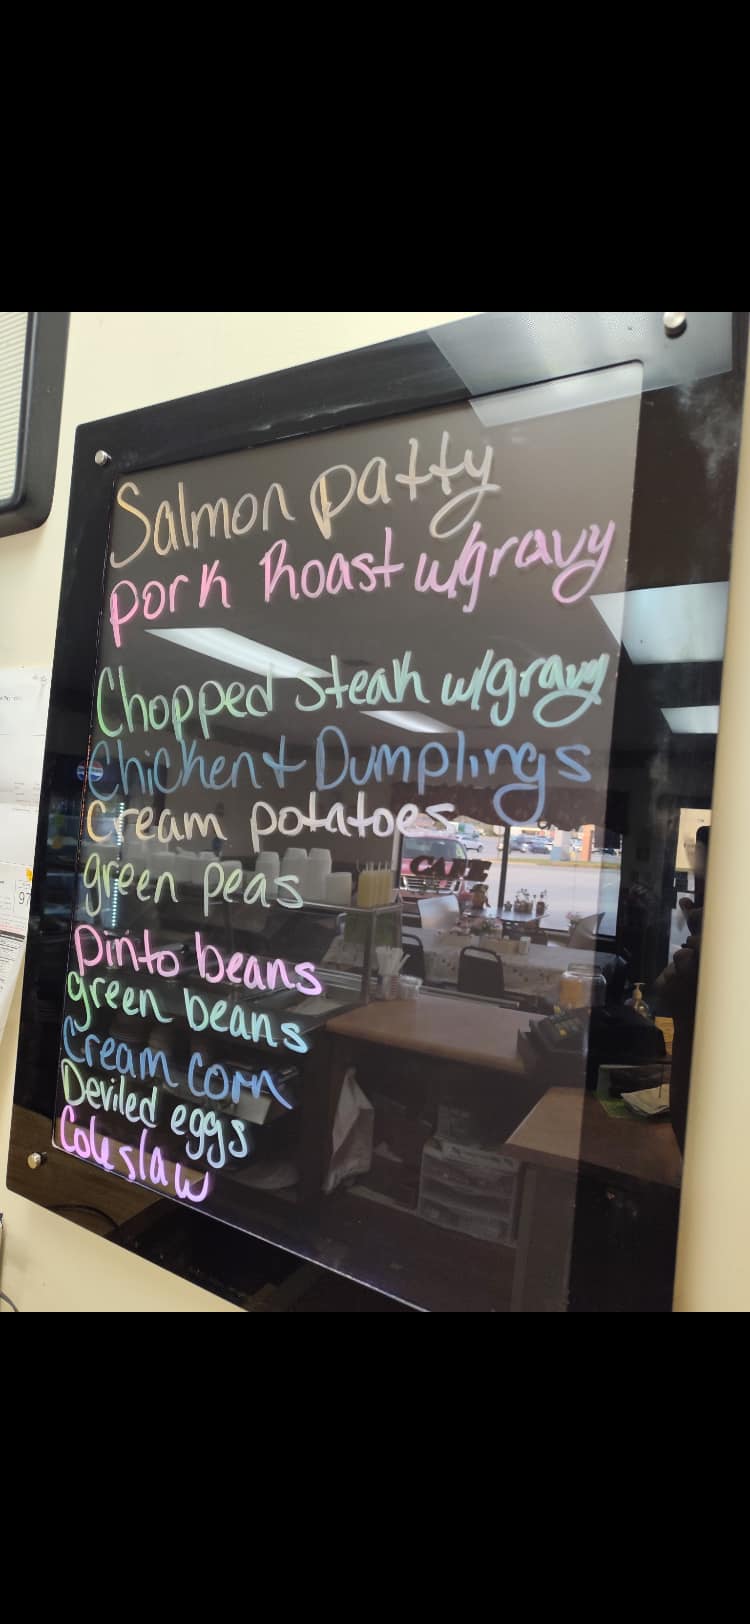 Salmon patty
pork Roast w/gravy
Chopped steak w/gravy
Chicken + Dumplings
Cream potatoes
green peas
pinto beans
green beans
Cream Corn
Deviled eggs
Coleslaw
CAFE
97